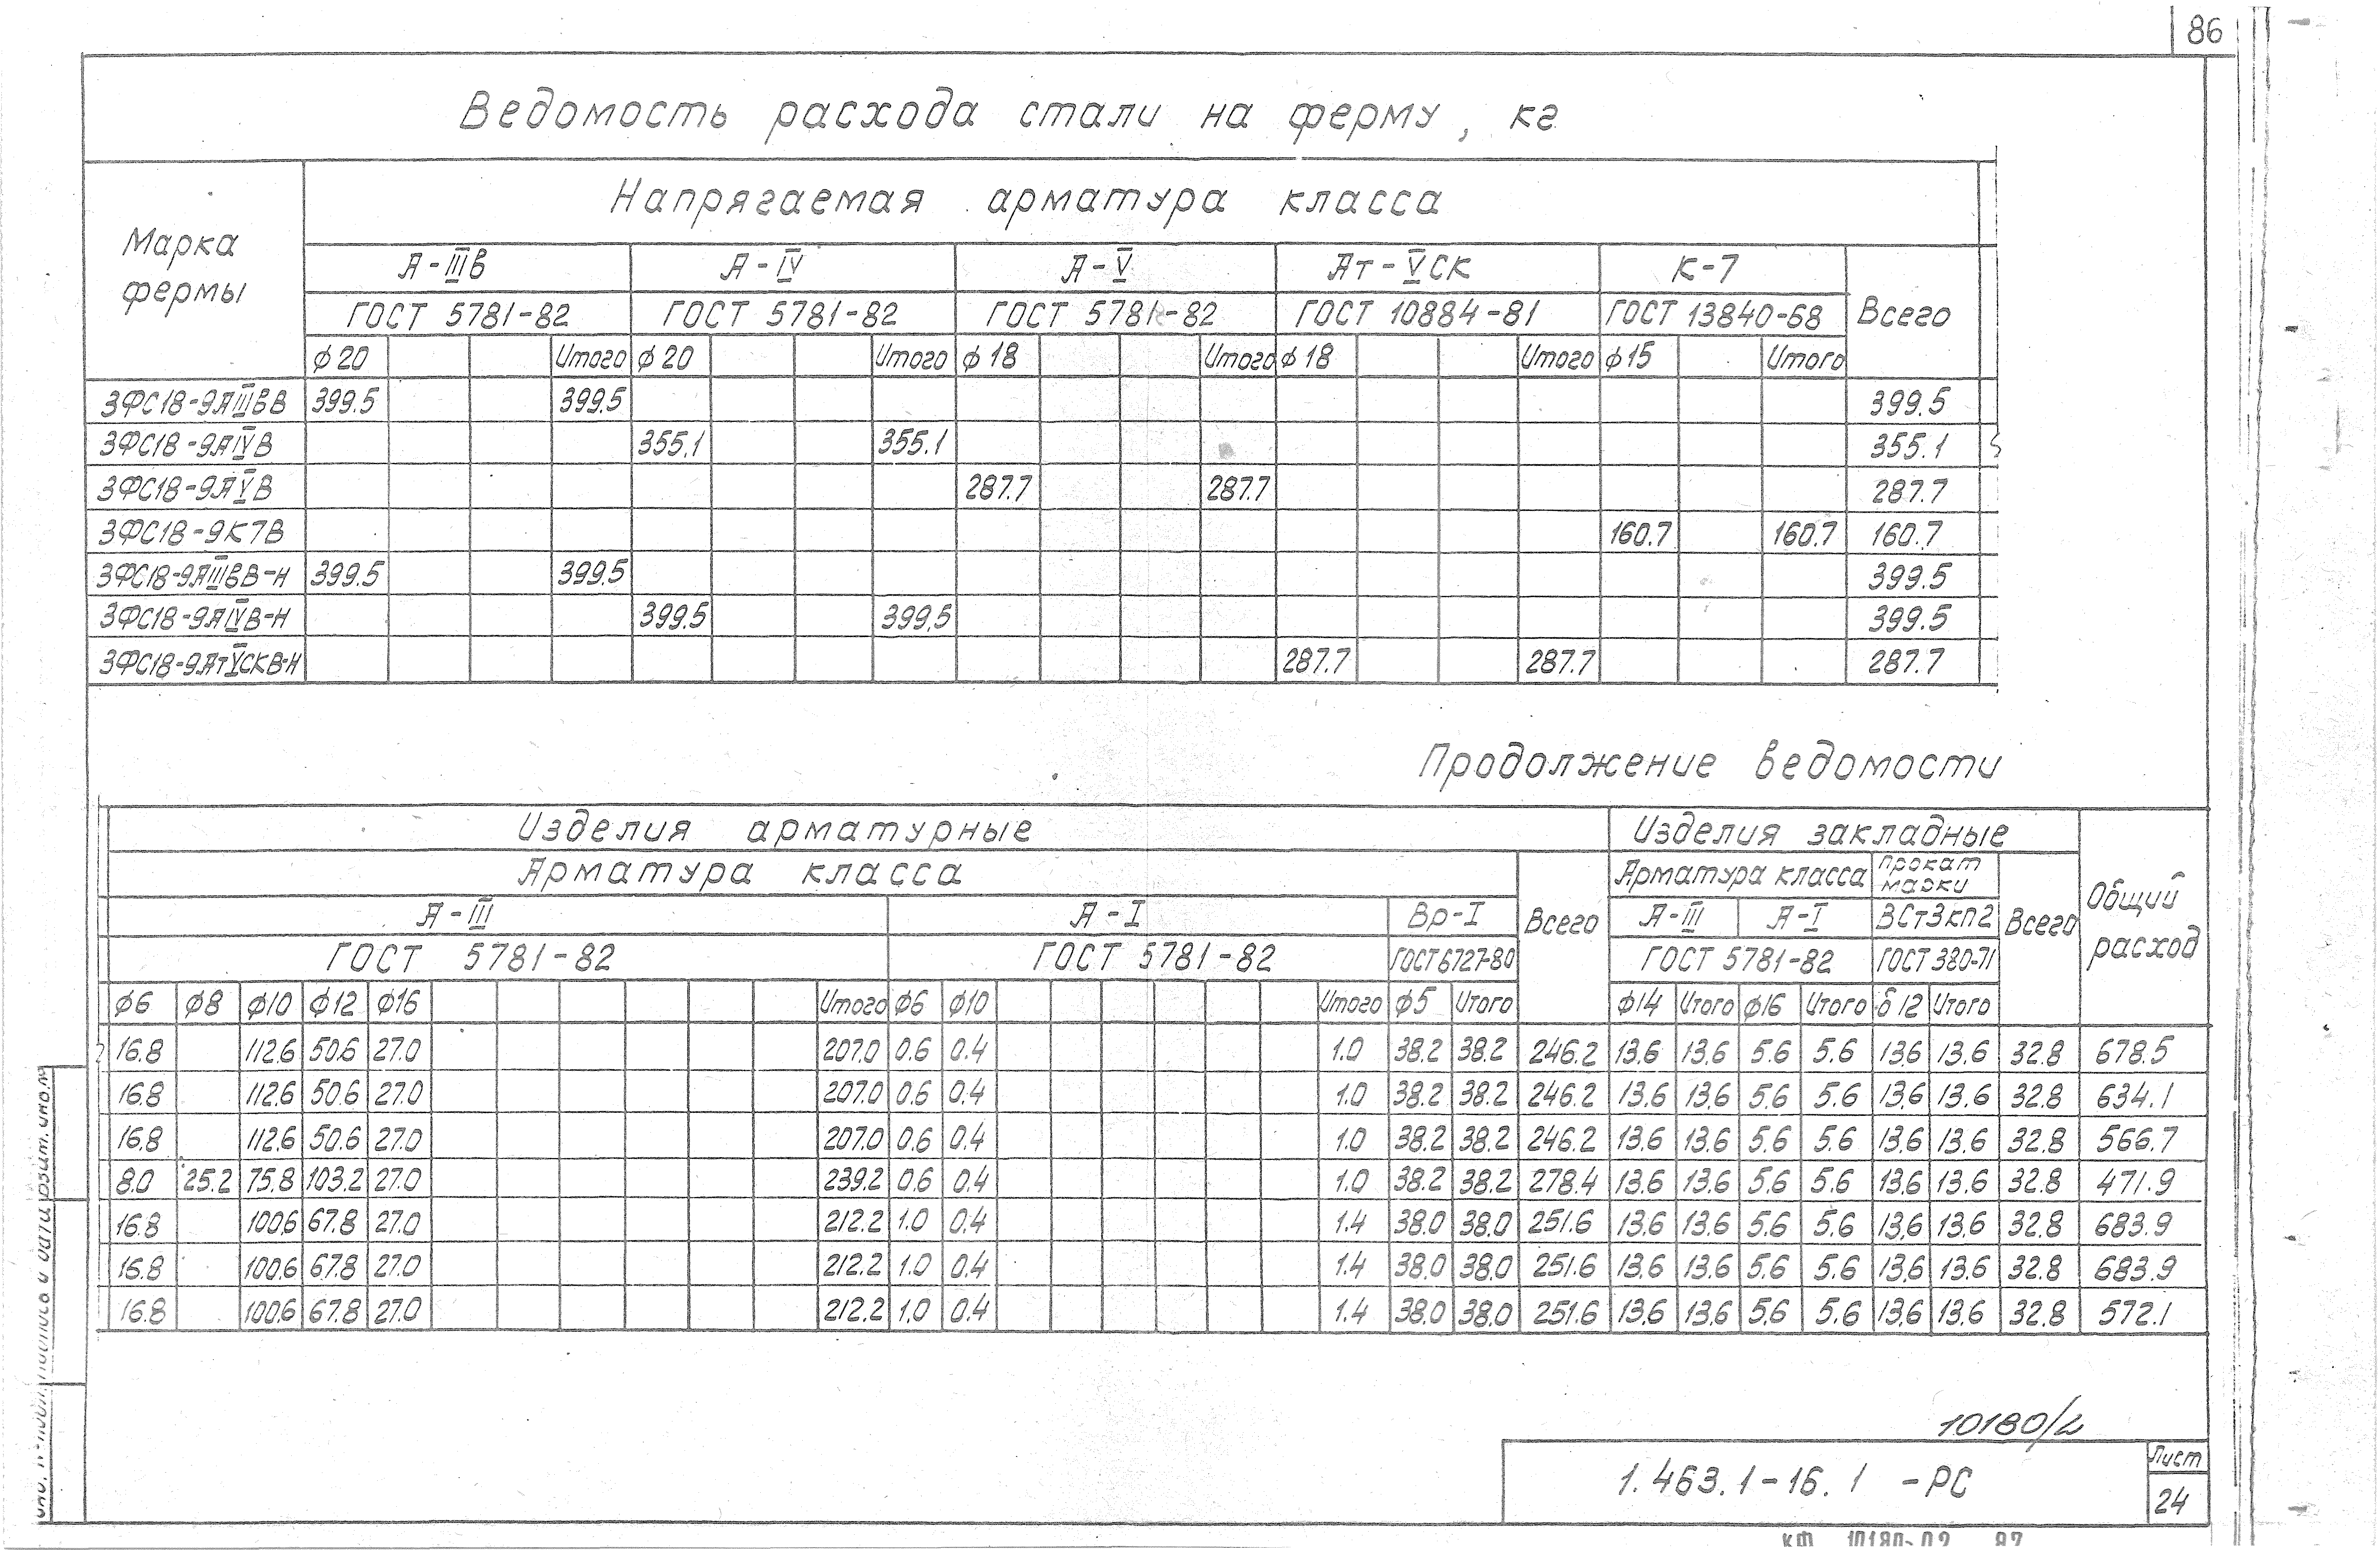 86
Ведомость расхода стали на ферму, кг
Марка фермы
Напрягаемая арматура класса
А-IIIв А-IV А-V Ат-VСК К-7 Всего
ГОСТ 5781-82 ГОСТ 5781-82 ГОСТ 5781-82 ГОСТ 10884-81 ГОСТ 13840-68
ф20 Итого ф20 Итого ф18 Итого ф18 Итого ф15 Итого
3ФС18-9АIIIвВ 399.5 399.5 399.5
3ФС18-9АIVВ 355.1 355.1 355.1
3ФС18-9АVВ 287.7 287.7 287.7
3ФС18-9К7В 160.7 160.7 160.7
3ФС18-9АIIIвВ-Н 399.5 399.5 399.5
3ФС18-9АIVВ-Н 399.5 399.5 399.5
3ФС18-9АтVСКВ-Н 287.7 287.7 287.7
Продолжение ведомости
Изделия арматурные Изделия закладные Общий расход
Арматура класса Всего Арматура класса Прокат марки Всего
А-III А-I Вр-I А-III А-I ВСт3кп2
ГОСТ 5781-82 ГОСТ 5781-82 ГОСТ 6727-80 ГОСТ 5781-82 ГОСТ 380-71
ф6 ф8 ф10 ф12 ф16 Итого ф6 ф10 Итого ф5 Итого ф14 Итого ф16 Итого δ12 Итого
16.8 112.6 50.6 27.0 207.0 0.6 0.4 1.0 38.2 38.2 246.2 13.6 13.6 5.6 5.6 13.6 13.6 32.8 678.5
16.8 112.6 50.6 27.0 207.0 0.6 0.4 1.0 38.2 38.2 246.2 13.6 13.6 5.6 5.6 13.6 13.6 32.8 634.1
16.8 112.6 50.6 27.0 207.0 0.6 0.4 1.0 38.2 38.2 246.2 13.6 13.6 5.6 5.6 13.6 13.6 32.8 566.7
8.0 25.2 75.8 103.2 27.0 239.2 0.6 0.4 1.0 38.2 38.2 278.4 13.6 13.6 5.6 5.6 13.6 13.6 32.8 471.9
16.8 100.6 67.8 27.0 212.2 1.0 0.4 1.4 38.0 38.0 251.6 13.6 13.6 5.6 5.6 13.6 13.6 32.8 683.9
16.8 100.6 67.8 27.0 212.2 1.0 0.4 1.4 38.0 38.0 251.6 13.6 13.6 5.6 5.6 13.6 13.6 32.8 683.9
16.8 100.6 67.8 27.0 212.2 1.0 0.4 1.4 38.0 38.0 251.6 13.6 13.6 5.6 5.6 13.6 13.6 32.8 572.1
10180/2
1.463.1-16.1 -РС
Лист
24